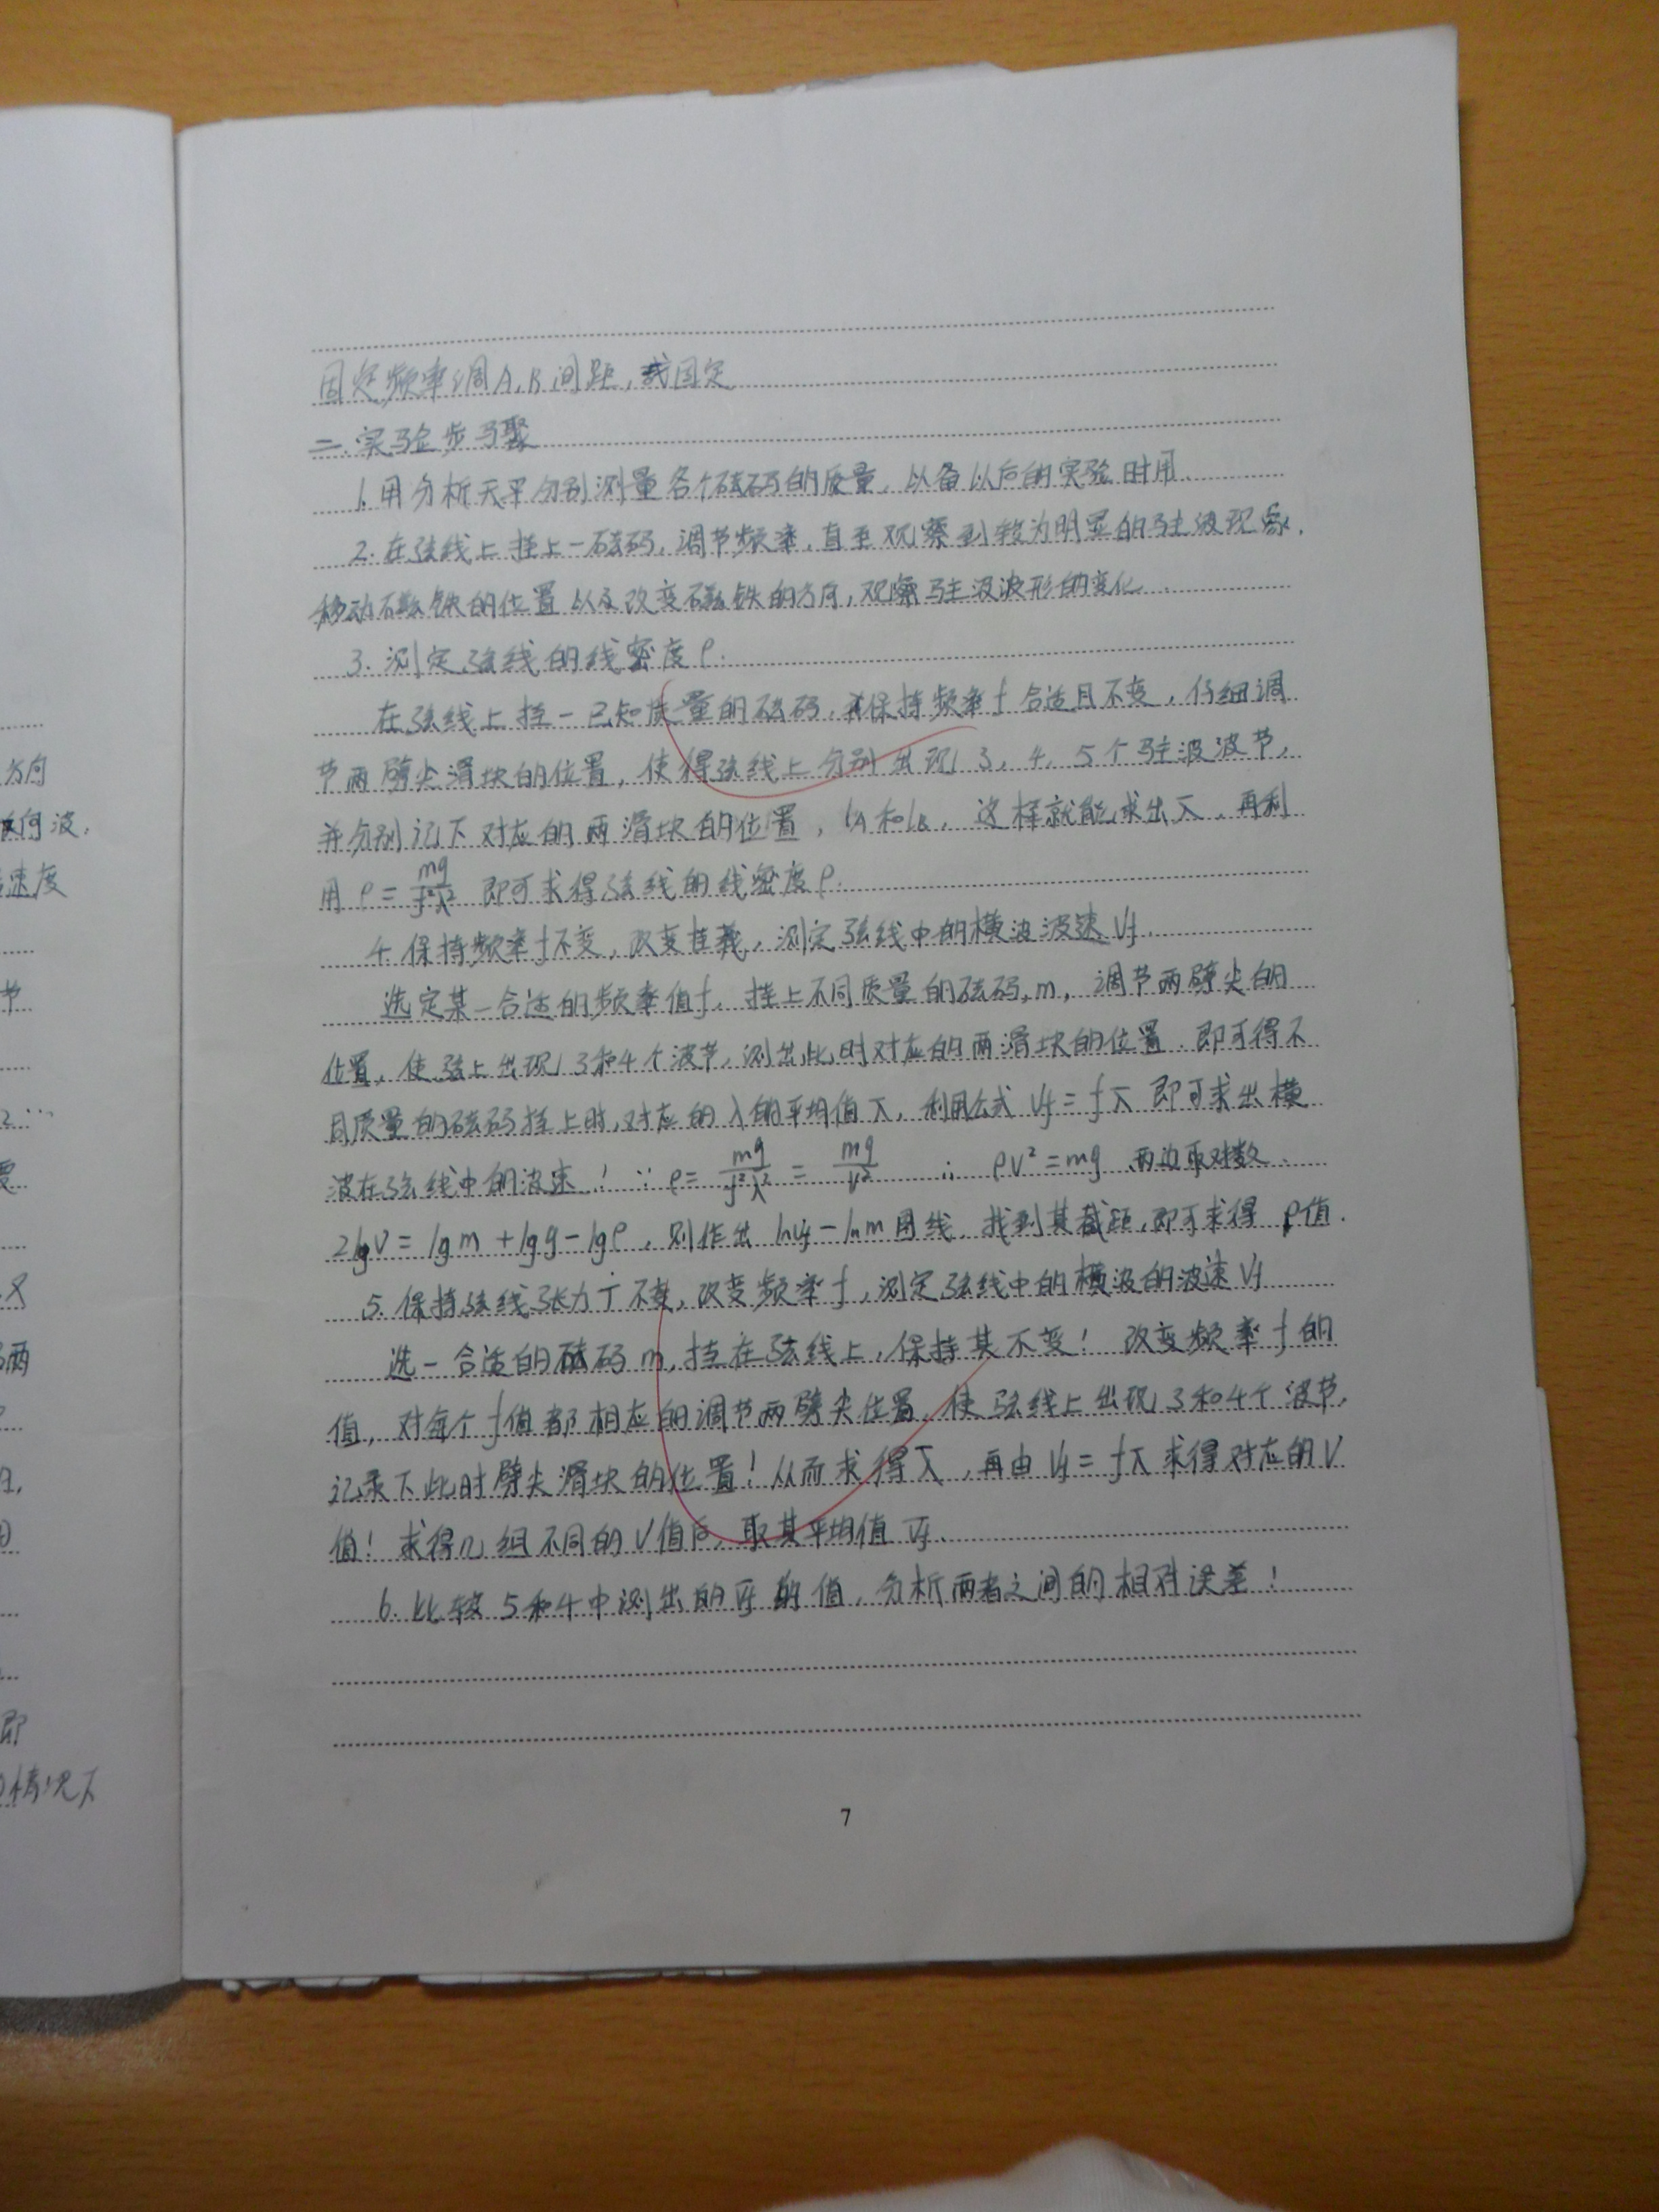 方向
反向波,
速度
节
2…
要
两
即
情况下
固定频率调A,B间距,或固定
二.实验步骤
1.用分析天平分别测量各个砝码的质量,以备以后的实验时用.
2.在弦线上挂上一砝码,调节频率,直至观察到较为明显的驻波现象.
移动磁铁的位置以及改变磁铁的方向,观察驻波波形的变化.
3.测定弦线的线密度ρ.
在弦线上挂一已知质量的砝码,保持频率f合适且不变,仔细调
节两劈尖滑块的位置,使得弦线上分别出现3,4,5个驻波波节,
并分别记下对应的两滑块的位置,lA和lB,这样就能求出λ̄,再利
用ρ=mg/f²λ²即可求得弦线的线密度ρ.
4.保持频率f不变,改变挂载,测定弦线中的横波波速Vf.
选定某一合适的频率值f,挂上不同质量的砝码,m,调节两劈尖的
位置,使弦上出现3和4个波节,测出此时对应的两滑块的位置.即可得不
同质量的砝码挂上时,对应的λ的平均值λ̄,利用公式Vf=fλ̄即可求出横
波在弦线中的波速!∵ρ=mg/f²λ²=mg/V² ∴ρV²=mg 两边取对数.
2lgV=lgm+lgg-lgρ,则作出lnVf-lnm曲线,找到其截距,即可求得ρ值.
5.保持弦线张力T不变,改变频率f,测定弦线中的横波的波速Vf
选一合适的砝码m,挂在弦线上,保持其不变!改变频率f的
值,对每个f值都相应的调节两劈尖位置,使弦线上出现3和4个波节,
记录下此时劈尖滑块的位置!从而求得λ̄,再由Vf=fλ̄求得对应的V
值!求得几组不同的V值后,取其平均值V̄f.
6.比较5和4中测出的V̄f的值,分析两者之间的相对误差!
7